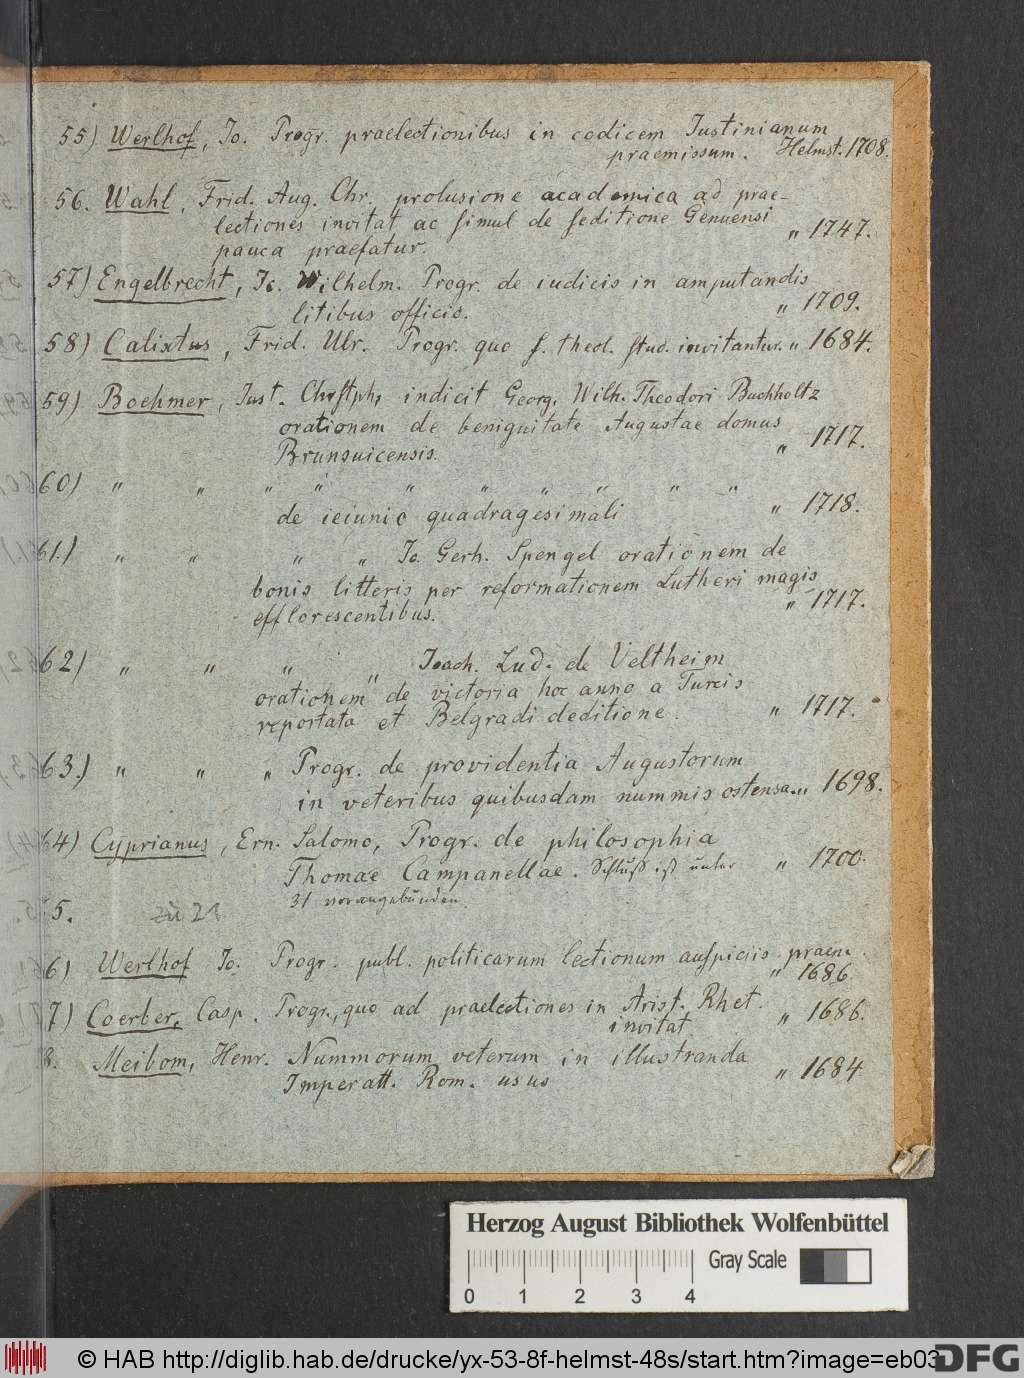 55) Werlhof, Jo. Progr. praelectionibus in codicem Justinianum
praemissum. Helmst. 1708.
56. Wahl, Frid. Aug. Chr. prolusione academica ad prae-
lectiones invitat ac simul de seditione Genuensi
pauca praefatur. " 1747.
57) Engelbrecht, Jo. Wilhelm. Progr. de iudicis in amputandis
litibus officio. " 1709.
58) Calixtus, Frid. Ulr. Progr. quo s. theol. stud. invitantur. " 1684.
59) Boehmer, Just. Christph, indicit Georg. Wilh. Theodori Buchholtz
orationem de benignitate Augustae domus
Brunsuicensis. " 1717.
60) " " " " " " " " " "
de ieiunio quadragesimali " 1718.
61.) " " " " Jo. Gerh. Spengel orationem de
bonis litteris per reformationem Lutheri magis
efflorescentibus. " 1717.
62) " " " " Joach. Lud. de Veltheim
orationem de victoria hoc anno a Turcis
reportata et Belgradi deditione. " 1717.
63.) " " " Progr. de providentia Augustorum
in veteribus quibusdam nummis ostensa. " 1698.
64) Cyprianus, Ern. Salomo, Progr. de philosophia
Thomae Campanellae. Schluß ist unter " 1700.
31 vorangebunden.
5. zu 23
6) Werlhof Jo. Progr. publ. politicarum lectionum auspiciis praem.
" 1686.
7) Coerber, Casp. Progr., quo ad praelectiones in Arist. Rhet.
invitat " 1686.
8. Meibom, Henr. Nummorum veterum in illustranda
Imperatt. Rom. usus " 1684
Herzog August Bibliothek Wolfenbüttel
Gray Scale
0 1 2 3 4
© HAB http://diglib.hab.de/drucke/yx-53-8f-helmst-48s/start.htm?image=eb03
DFG